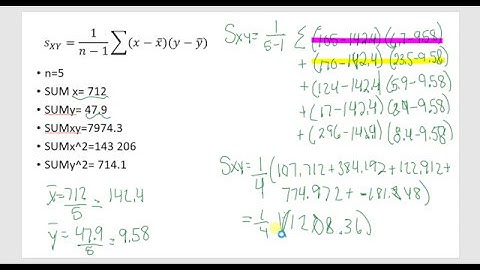 s_XY = 1/(n−1) ∑(x − x̄)(y − ȳ)
• n=5
• SUM x= 712
• SUMy= 47.9
• SUMxy=7974.3
• SUMx^2=143 206
• SUMy^2= 714.1
x̄ = 712/5 = 142.4
ȳ = 47.9/5 = 9.58
Sxy = 1/(5-1) Σ (165-142.4)(6.7-9.58)
+ (170-142.4)(23.5-9.58)
+ (124-142.4)(5.9-9.58)
+ (17-142.4)(
-9.58)
+ (296-
)(8.4-9.58)
Sxy = 1/4 (107.712 + 384.192 + 122.912 +
774.972 + -181.
48)
= 1/4 (1208.36)